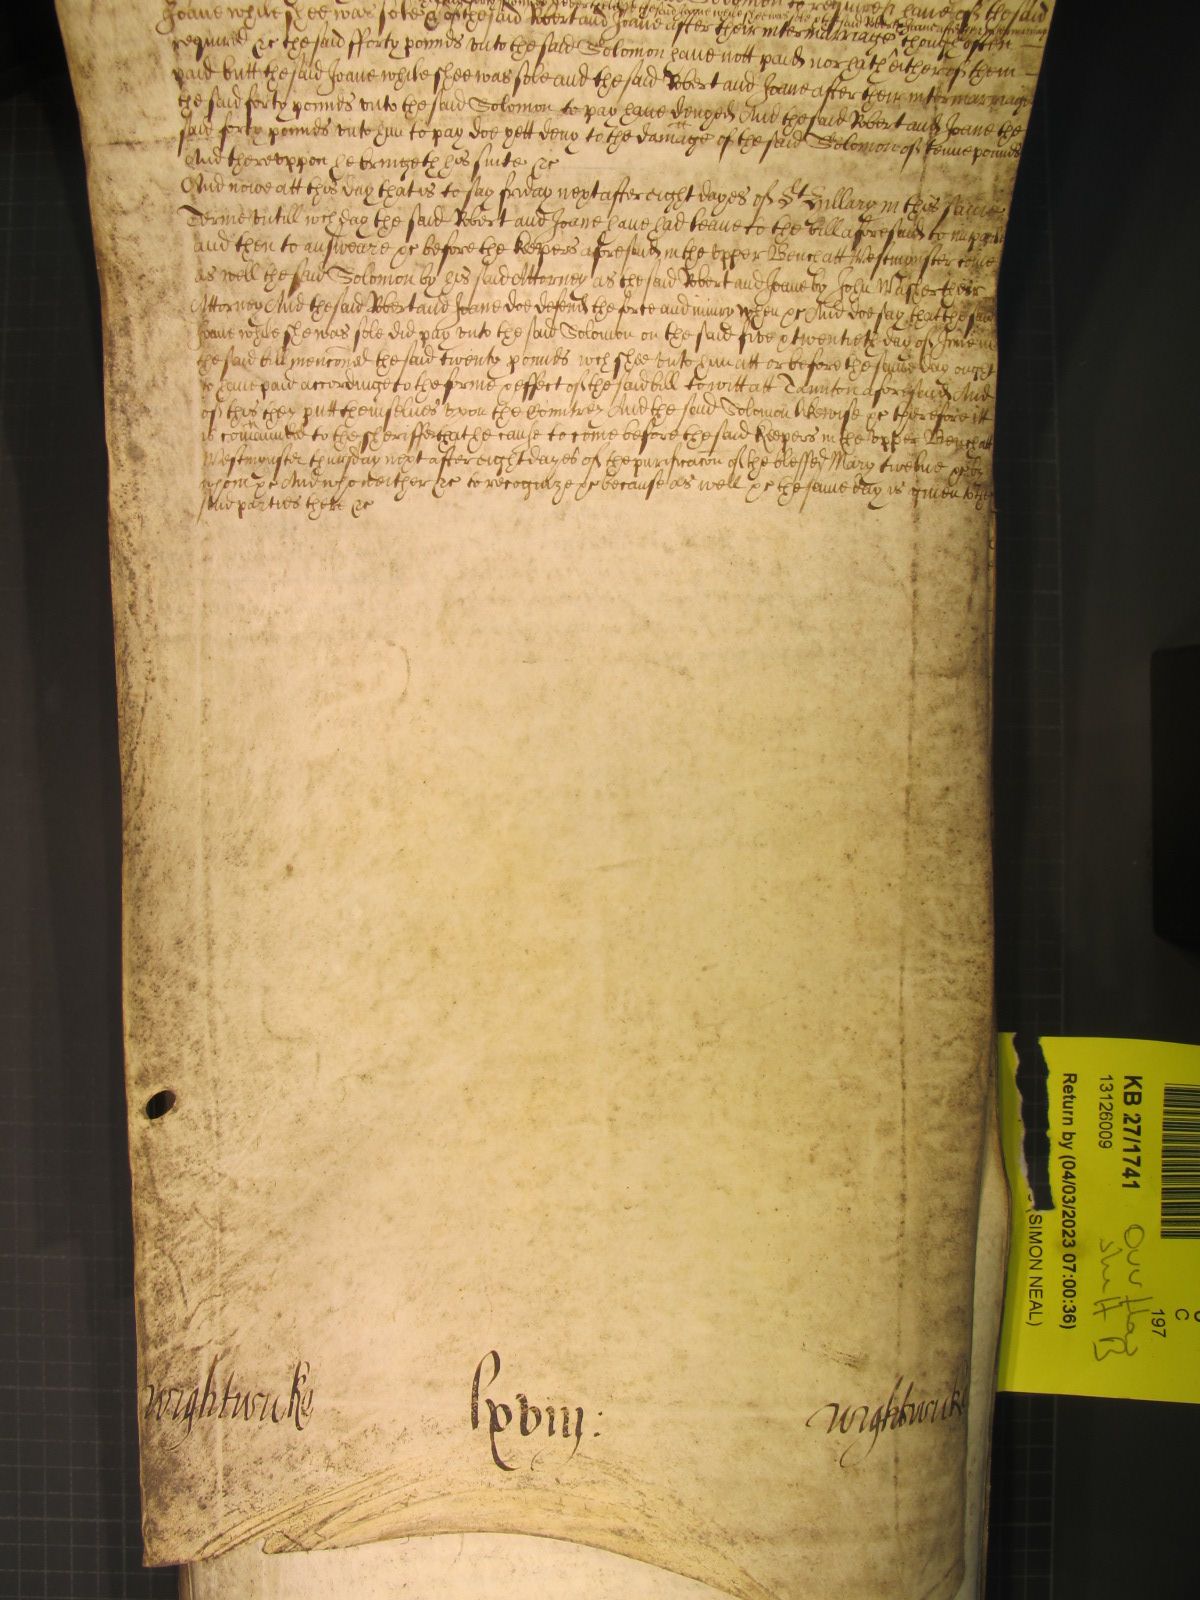 Joane while shee was sole & of the said Robert and Joane after their intermarriage though often
required &c the said fforty pounds unto the said Solomon have nott paid nor hath either of them
paid butt the said Joane while shee was sole and the said Robert and Joane after their intermarriage
the said forty pounds unto the said Solomon to pay have denyed And the said Robert and Joane the
said forty pounds unto him to pay doe yett deny to the damage of the said Solomon of tenne pounds
And thereuppon he bringeth his suite &c
And nowe att this day that is to say friday next after eight dayes of St Hillary in this same
Terme untill wch day the said Robert and Joane have had leave to the bill aforesaid to imparle
and then to answeare &c before the Keepers aforesaid in the upper Bench att Westminster come
as well the said Solomon by his said Attorney as the said Robert and Joane by John Master their
Attorney And the said Robert and Joane doe defend the force and iniury when &c And doe say that the said
Joane while shee was sole did pay unto the said Solomon on the said five & twentieth day of June in
the said bill menconed the said twenty pounds wch shee unto him att or before the same day ought
to have paid accordinge to the forme & effect of the said bill to witt att Taunton aforesaid And
of this they putt themselves upon the Countrey And the said Solomon likewise &c therefore itt
is comaunded to the sheriffe that he cause to come before the said Keepers in the upper Bench att
Westminster thursday next after eight dayes of the purificacon of the blessed Mary twelve &c by
whom &c And who neither &c to recognize &c because as well &c the same day is given to the
said parties there &c
Wightwicke
lxviij:
Wightwicke
KB 27/1741
13126009
Return by (04/03/2023 07:00:36)
(SIMON NEAL)
197
C